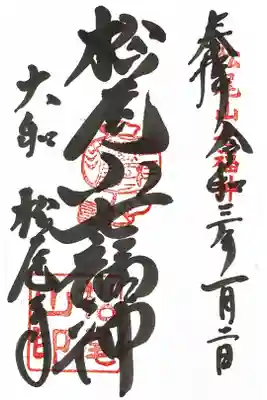 奉拝 令和三年一月二日
松尾山七福神
大和 松尾寺